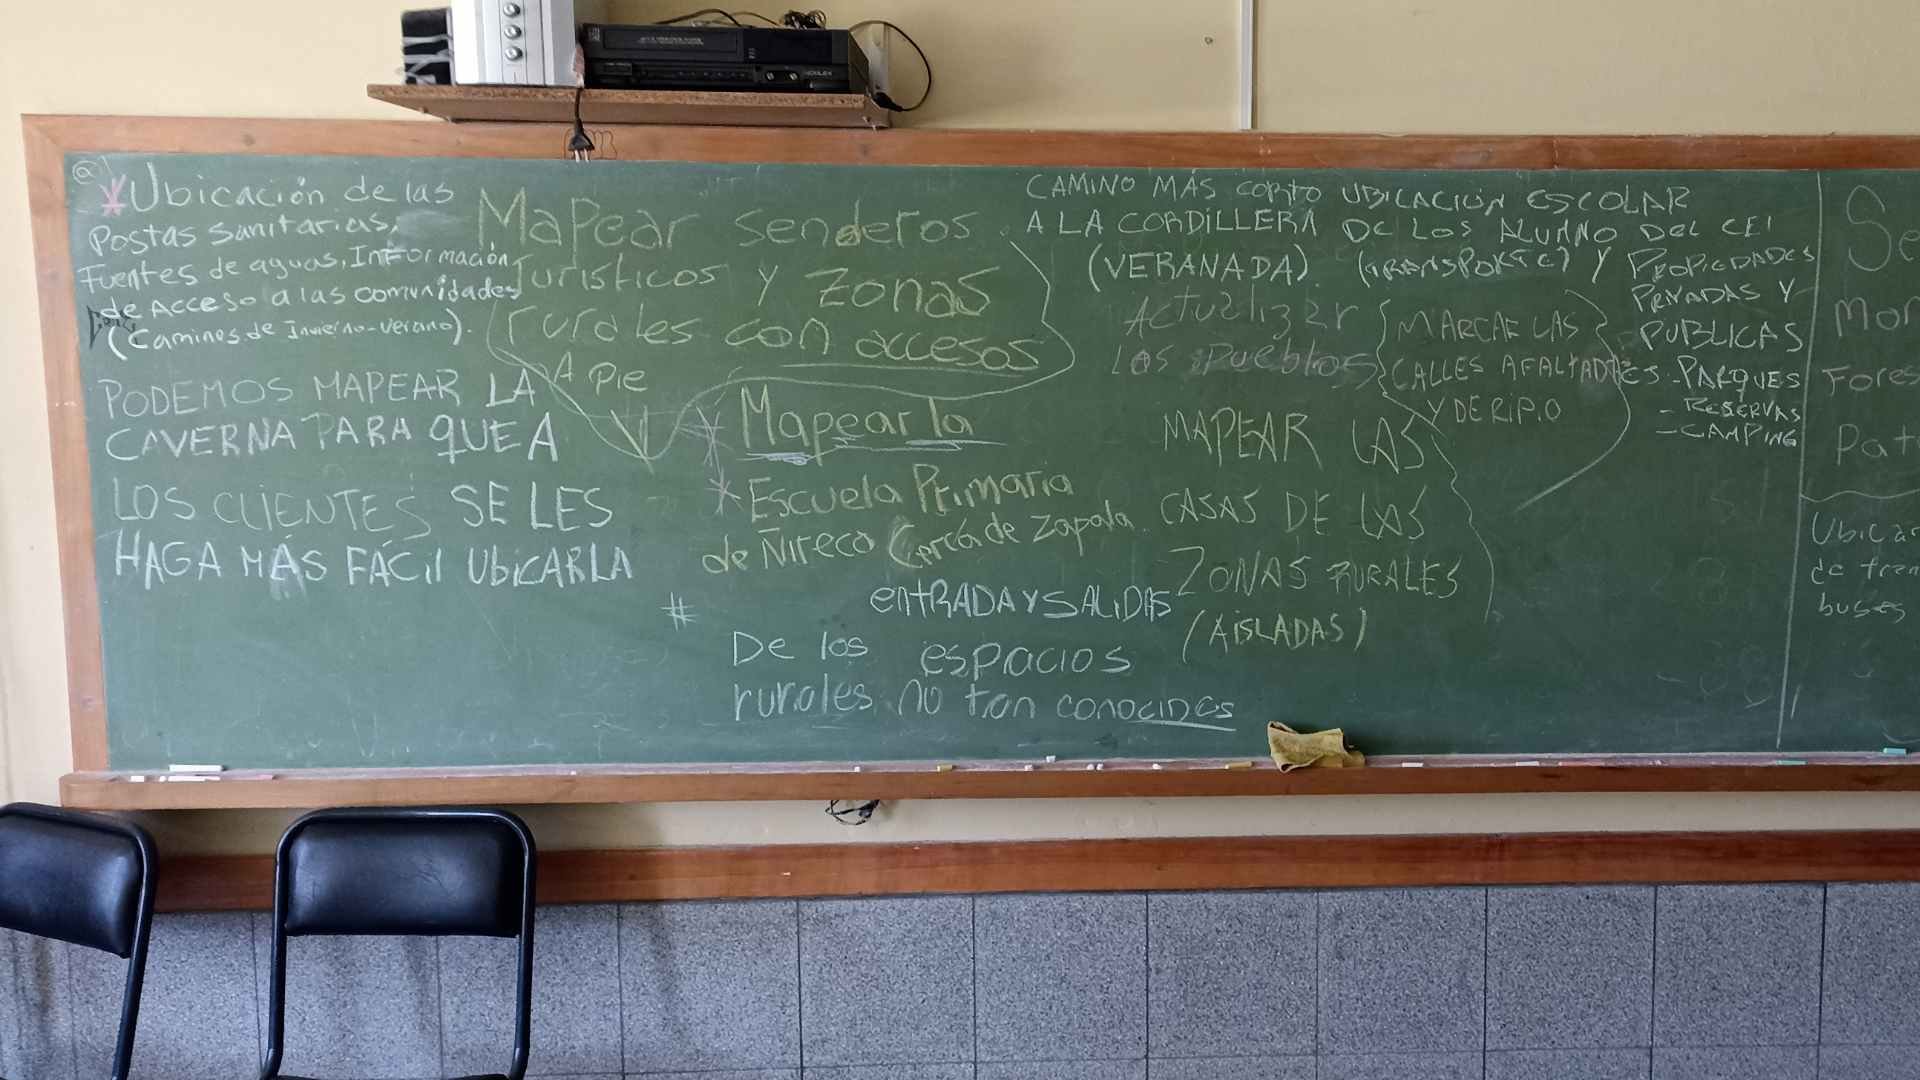 *Ubicación de las
Postas sanitarias,
Fuentes de aguas, Información
de Acceso a las comunidades
(Caminos de Invierno-verano).
PODEMOS MAPEAR LA
CAVERNA PARA QUE A
LOS CLIENTES SE LES
HAGA MÁS FÁCIL UBICARLA
Mapear senderos
Turísticos y zonas
rurales con accesos
A Pie
* Mapear la
* Escuela Primaria
de Ñireco Cerca de Zapala.
# entRADA Y SALIDAS
De los espacios
rurales no tan conocidos
CAMINO MÁS CORTO
A LA CORDILLERA
(VERANADA).
Actualizar
Los Pueblos
MARCAR LAS
CALLES AFALTADAS
Y DE RIPIO
MAPEAR LAS
CASAS DE LAS
ZONAS RURALES
(AISLADAS)
UBICACIÓN ESCOLAR
DE LOS ALUMNO DEL CEI
(TRANSPORTE) Y PROPIEDADES
PRIVADAS Y
PUBLICAS
- PARQUES
- RESERVAS
- CAMPING
Se
Mon
Fores
Pat
Ubicar
de tren
buses